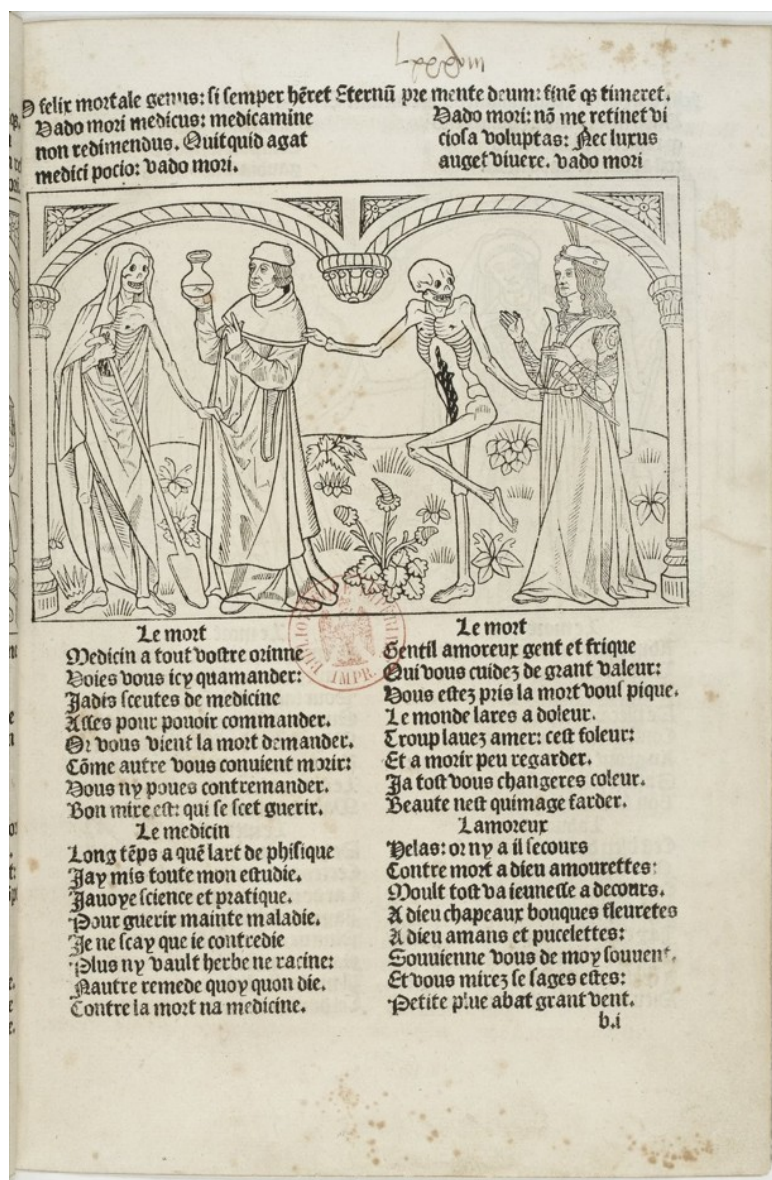 O felix mortale genus: si semper hēret Eternū pre mente deum: finē qꝫ timeret.
Vado mori medicus: medicamine
non redimendus. Quitquid agat
medici pocio: vado mori.
Vado mori: nō me retinet vi
ciosa voluptas: Nec luxus
auget vivere. vado mori
Le mort
Medicin a tout vostre orinne
Voies vous icy quamander:
Jadis sceutes de medicine
Asses pour pouoir commander.
Or vous vient la mort demander.
Cōme autre vous conuient morir:
Vous ny poues contremander.
Bon mire est: qui se scet guerir.
Le medicin
Long tēps a quē lart de phisique
Jay mis toute mon estudie.
Jauoye science et pratique.
Pour guerir mainte maladie.
Je ne scay que ie contredie
Plus ny vault herbe ne racine:
Nautre remede quoy quon die.
Contre la mort na medicine.
Le mort
Gentil amoreux gent et frique
Qui vous cuidez de grant valeur:
Vous estez pris la mort vous pique.
Le monde lares a doleur.
Troup lauez amer: cest foleur:
Et a morir peu regarder.
Ja tost vous changeres coleur.
Beaute nest quimage farder.
Lamoreux
Helas: or ny a il secours
Contre mort a dieu amourettes:
Moult tost va ieunesse a decours.
A dieu chapeaux bouques fleuretes
A dieu amans et pucelettes:
Souuienne vous de moy souuent.
Et vous mirez se sages estes:
Petite pluie abat grant vent.
b.i
IMPR.